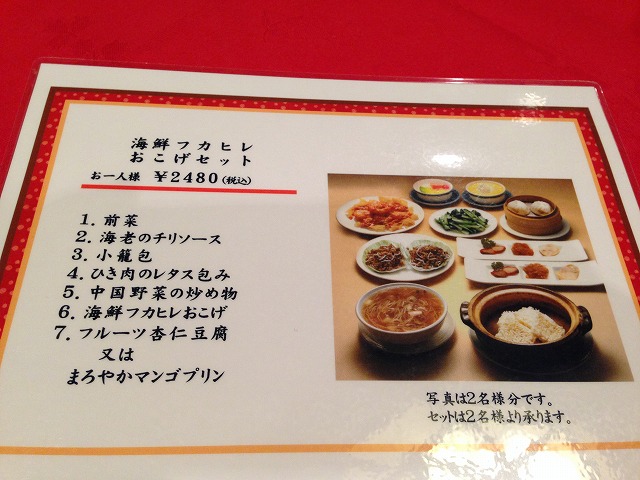 海鮮フカヒレ
おこげセット
お一人様 ￥2480(税込)
1. 前菜
2. 海老のチリソース
3. 小籠包
4. ひき肉のレタス包み
5. 中国野菜の炒め物
6. 海鮮フカヒレおこげ
7. フルーツ杏仁豆腐
又は
まろやかマンゴプリン
写真は2名様分です。
セットは2名様より承ります。